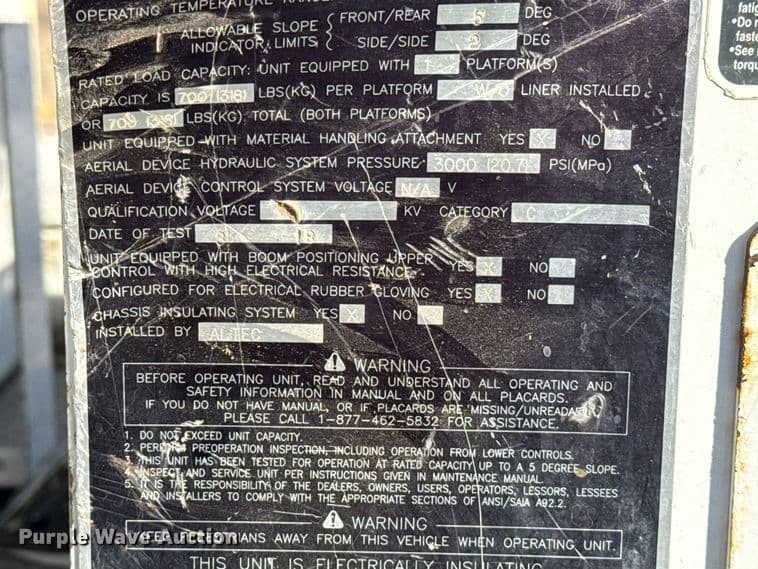 OPERATING TEMPERATURE RANGE
ALLOWABLE SLOPE { FRONT/REAR 5 DEG
INDICATOR LIMITS { SIDE/SIDE 2 DEG
RATED LOAD CAPACITY: UNIT EQUIPPED WITH 1 PLATFORM(S)
CAPACITY IS 700 (318) LBS(KG) PER PLATFORM W/O LINER INSTALLED
OR 700 (318) LBS(KG) TOTAL (BOTH PLATFORMS)
UNIT EQUIPPED WITH MATERIAL HANDLING ATTACHMENT YES X NO
AERIAL DEVICE HYDRAULIC SYSTEM PRESSURE 3000 (20.7) PSI(MPa)
AERIAL DEVICE CONTROL SYSTEM VOLTAGE N/A V
QUALIFICATION VOLTAGE KV CATEGORY C
DATE OF TEST
UNIT EQUIPPED WITH BOOM POSITIONING UPPER
CONTROL WITH HIGH ELECTRICAL RESISTANCE YES X NO
CONFIGURED FOR ELECTRICAL RUBBER GLOVING YES X NO
CHASSIS INSULATING SYSTEM YES X NO
INSTALLED BY ALTEC
⚠ WARNING
BEFORE OPERATING UNIT, READ AND UNDERSTAND ALL OPERATING AND
SAFETY INFORMATION IN MANUAL AND ON ALL PLACARDS.
IF YOU DO NOT HAVE MANUAL, OR IF PLACARDS ARE MISSING/UNREADABLE,
PLEASE CALL 1-877-462-5832 FOR ASSISTANCE.
1. DO NOT EXCEED UNIT CAPACITY.
2. PERFORM PREOPERATION INSPECTION, INCLUDING OPERATION FROM LOWER CONTROLS.
3. THIS UNIT HAS BEEN TESTED FOR OPERATION AT RATED CAPACITY UP TO A 5 DEGREE SLOPE.
4. INSPECT AND SERVICE UNIT PER INSTRUCTIONS GIVEN IN MAINTENANCE MANUAL.
5. IT IS THE RESPONSIBILITY OF THE DEALERS, OWNERS, USERS, OPERATORS, LESSORS, LESSEES
AND INSTALLERS TO COMPLY WITH THE APPROPRIATE SECTIONS OF ANSI/SAIA A92.2.
⚠ WARNING
KEEP PEDESTRIANS AWAY FROM THIS VEHICLE WHEN OPERATING UNIT.
THIS UNIT IS ELECTRICALLY INSULATING
fatig
•Do n
faste
•See
torqu
Purple Wave Auction